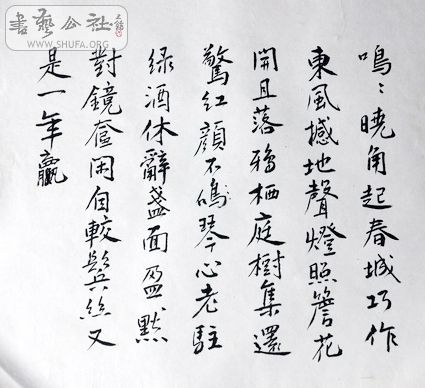 書藝公社
WWW.SHUFA.ORG
嗚〻曉角起春城巧作
東風撼地聲燈照簷花
開且落鴉栖庭樹集還
驚紅顏不鳴琴心老駐
绿酒休辭盞面盈默
對鏡奩闲自較鬢絲又
是一年贏